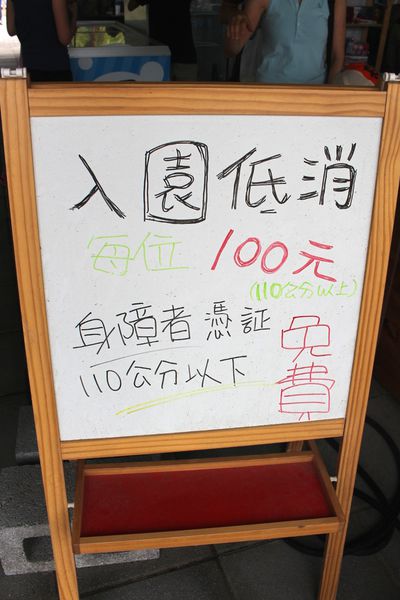 入園低消
每位 100元
(110公分以上)
身障者 憑証
110公分以下
免費